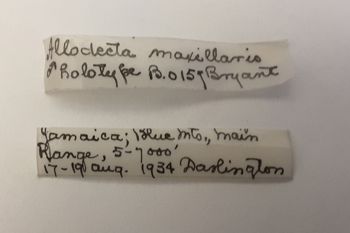 Allodecta maxillaris
♂ holotype B.0159 Bryant
Jamaica; Blue Mts., Main
Range, 5-7000'
17-19 Aug. 1934 Darlington